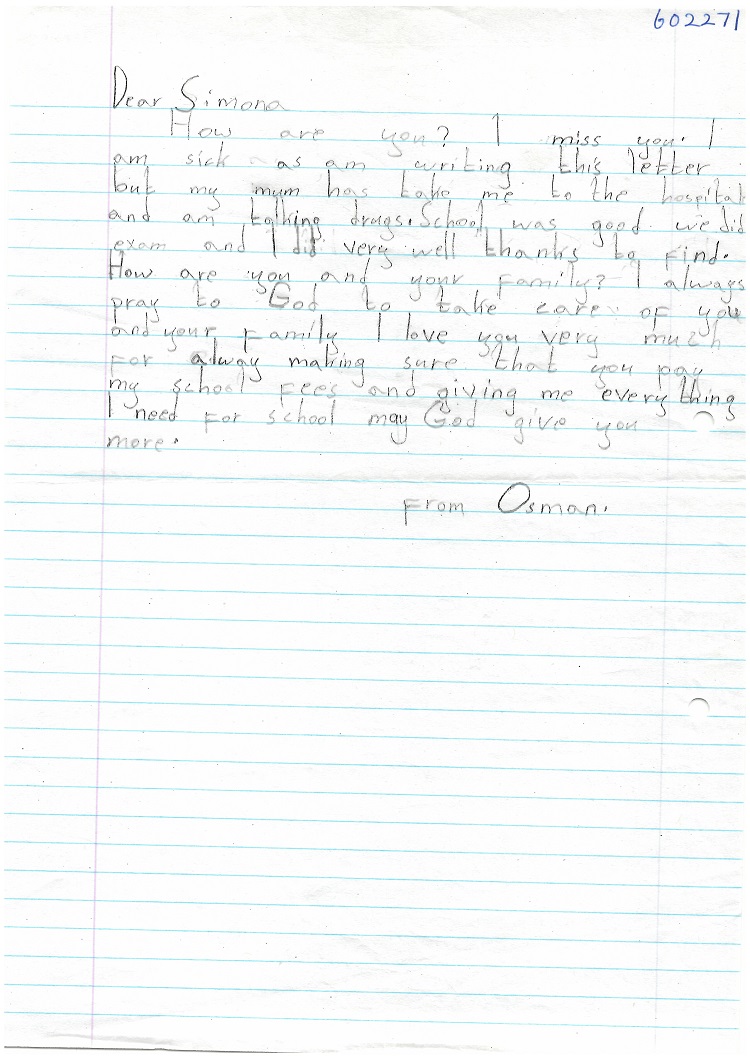 602271
Dear Simona
How are you? I miss you. I
am sick as am writing this letter
but my mum has take me to the hospital
and am talking drugs. School was good we did
exam and I did very well thanks to find.
How are you and your family? I always
pray to God to take care of you
and your family I love you very much
for alway making sure that you pay
my school fees and giving me every thing
I need for school may God give you
more.
From Osman.